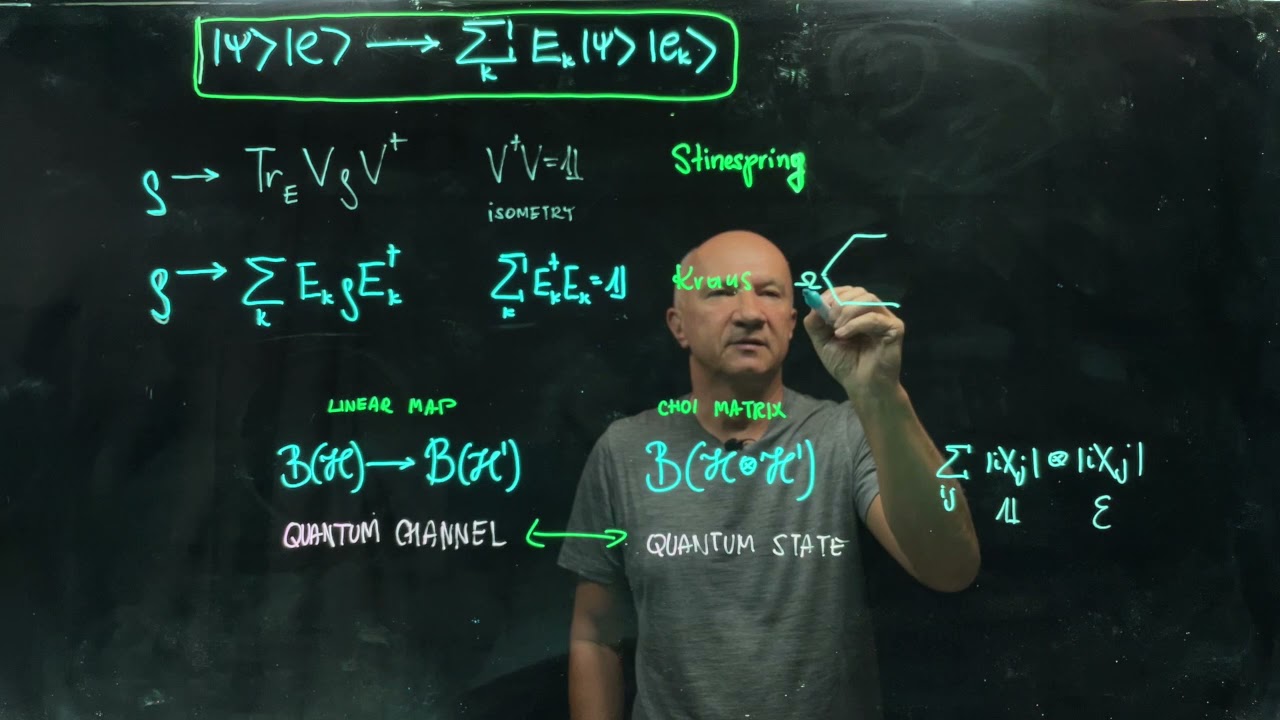 |Ψ>|e> → ∑ₖ Eₖ|Ψ>|eₖ>
ρ → Tr_E VρV† V†V=𝟙 Stinespring
ISOMETRY
ρ → ∑ₖ EₖρEₖ† ∑ₖ Eₖ†Eₖ=𝟙 Kraus Ω
LINEAR MAP CHOI MATRIX
B(ℋ) → B(ℋ') B(ℋ⊗ℋ') ∑ᵢⱼ |i⟩⟨j| ⊗ |i⟩⟨j|
𝟙 ε
QUANTUM CHANNEL ↔ QUANTUM STATE